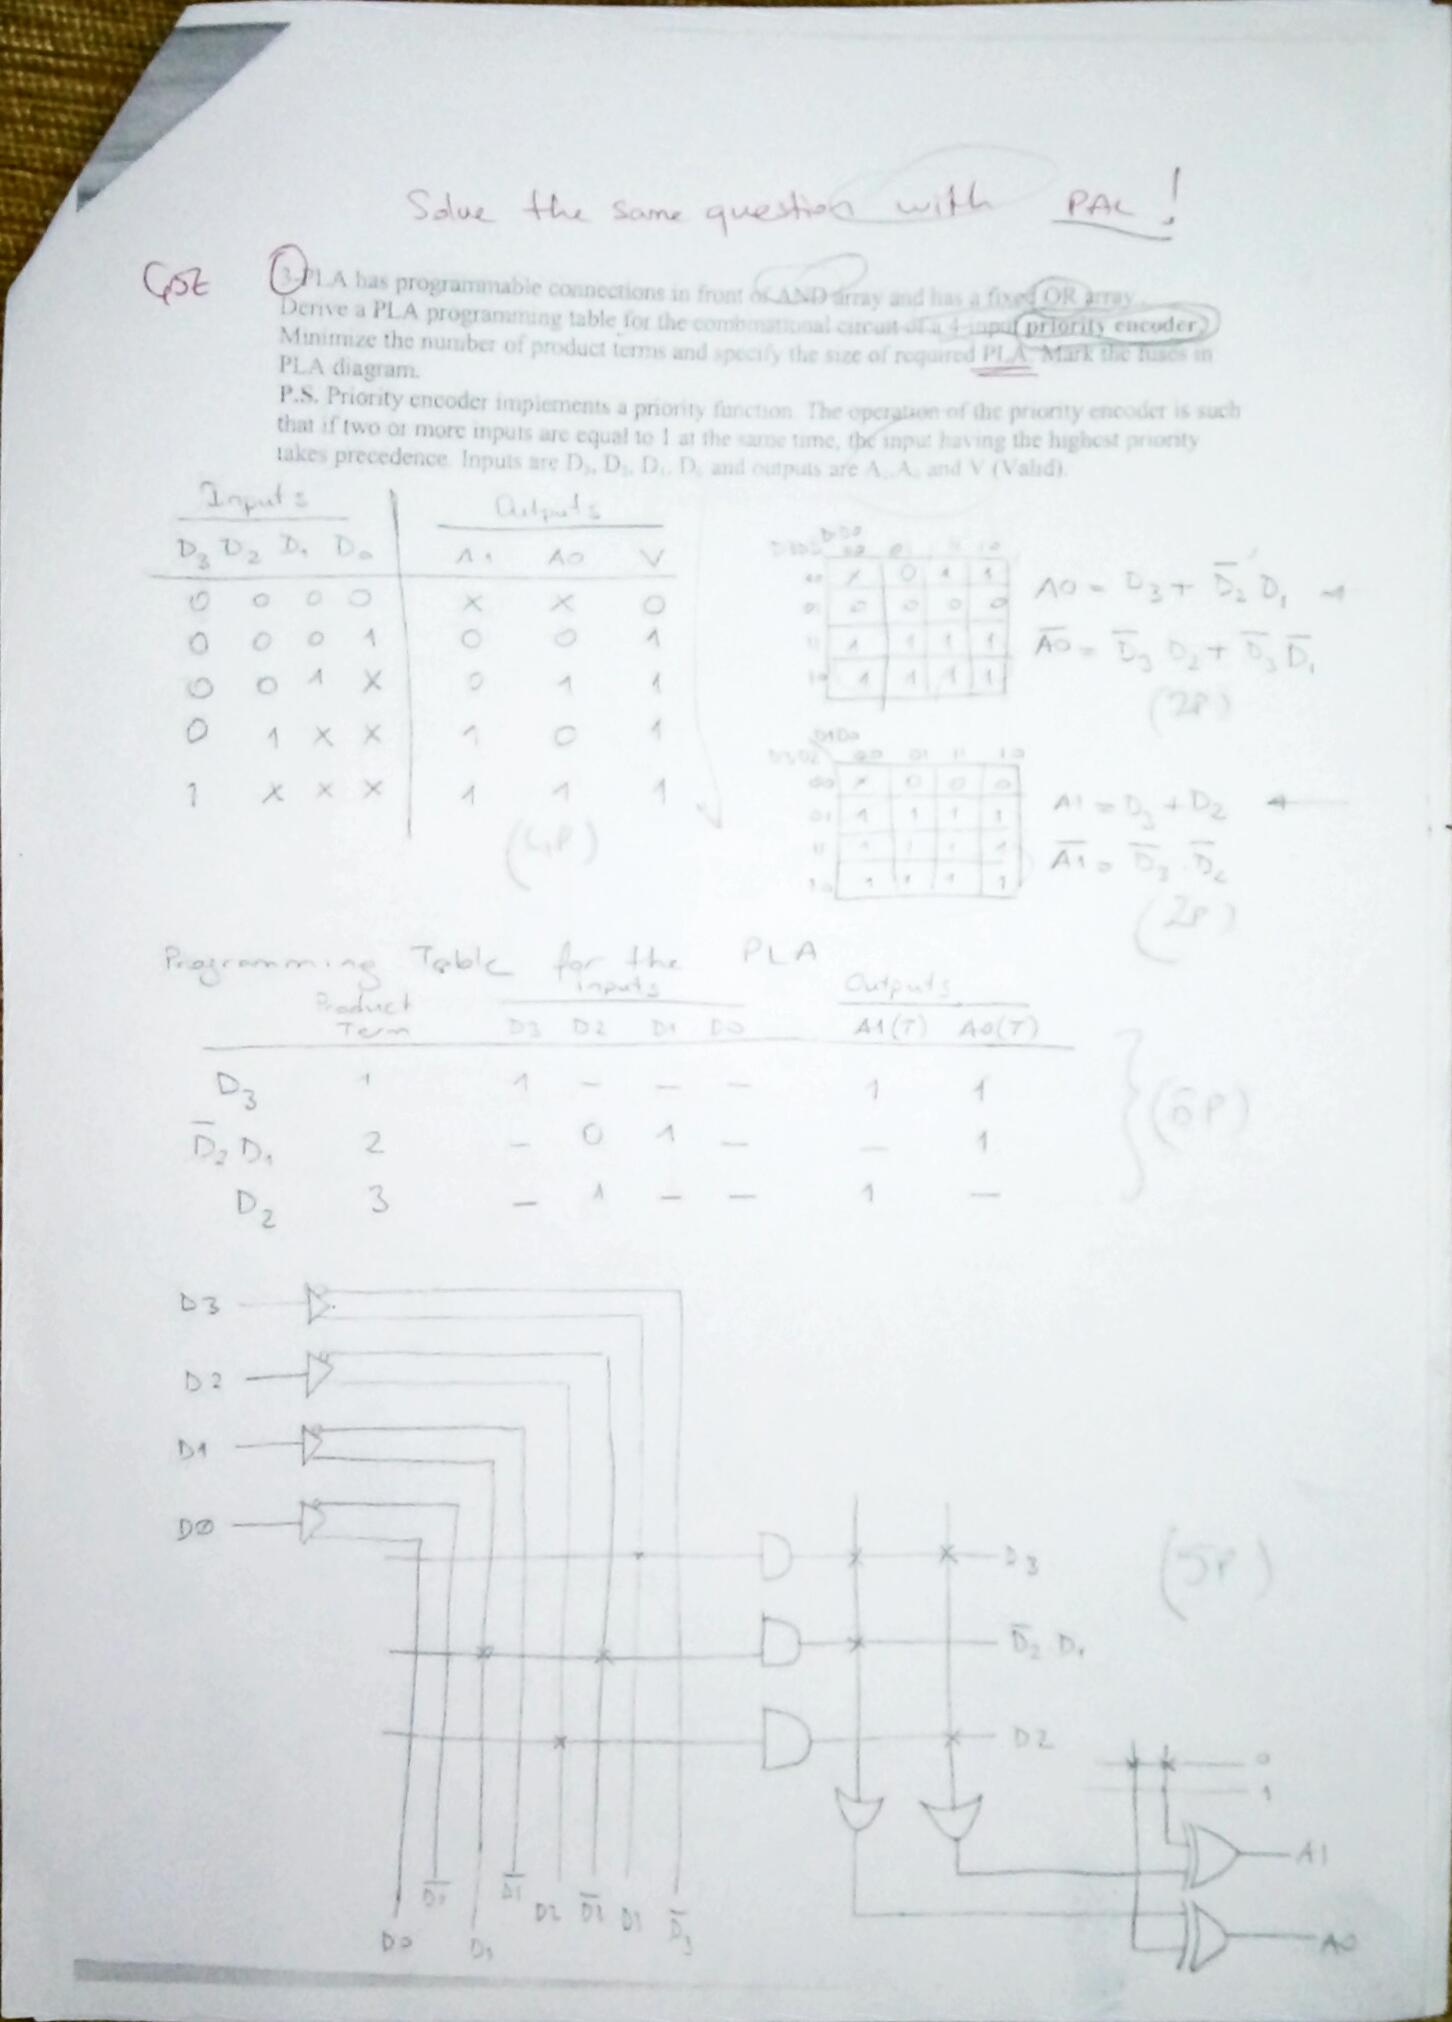 Solve the same question with PAL!
Çöz
3-PLA has programmable connections in front of AND array and has a fixed OR array.
Derive a PLA programming table for the combinational circuit of a 4-input priority encoder.
Minimize the number of product terms and specify the size of required PLA. Mark the fuses in
PLA diagram.
P.S. Priority encoder implements a priority function. The operation of the priority encoder is such
that if two or more inputs are equal to 1 at the same time, the input having the highest priority
takes precedence. Inputs are D₃, D₂, D₁, D₀ and outputs are A₁, A₀ and V (Valid).
Inputs Outputs
D₃ D₂ D₁ D₀ A₁ A0 V
0 0 0 0 X X 0
0 0 0 1 0 0 1
0 0 1 X 0 1 1
0 1 X X 1 0 1
1 X X X 1 1 1
(4P)
D1D0
D3D2 00 01 11 10
00 X 0 1 1
01 0 0 0 0
11 1 1 1 1
10 1 1 1 1
A0 = D₃ + D̅₂ D₁
A̅0̅ = D̅₃ D₂ + D̅₃ D̅₁
(2P)
D1D0
D3D2 00 01 11 10
00 X 0 0 0
01 1 1 1 1
11 1 1 1 1
10 1 1 1 1
A1 = D₃ + D₂
A̅1̅ = D̅₃ . D̅₂
(2P)
Programming Table for the PLA
Product Term Inputs Outputs
D3 D2 D1 D0 A1(T) A0(T)
D₃ 1 1 – – – 1 1
D̅₂ D₁ 2 – 0 1 – – 1
D₂ 3 – 1 – – 1 –
(6P)
D3
D2
D1
DØ
D3
D̅₂ D₁
D2
(5P)
0
1
A1
A0
D0 D̅0̅ D₁ D̅1̅ D2 D̅2̅ D3 D̅₃